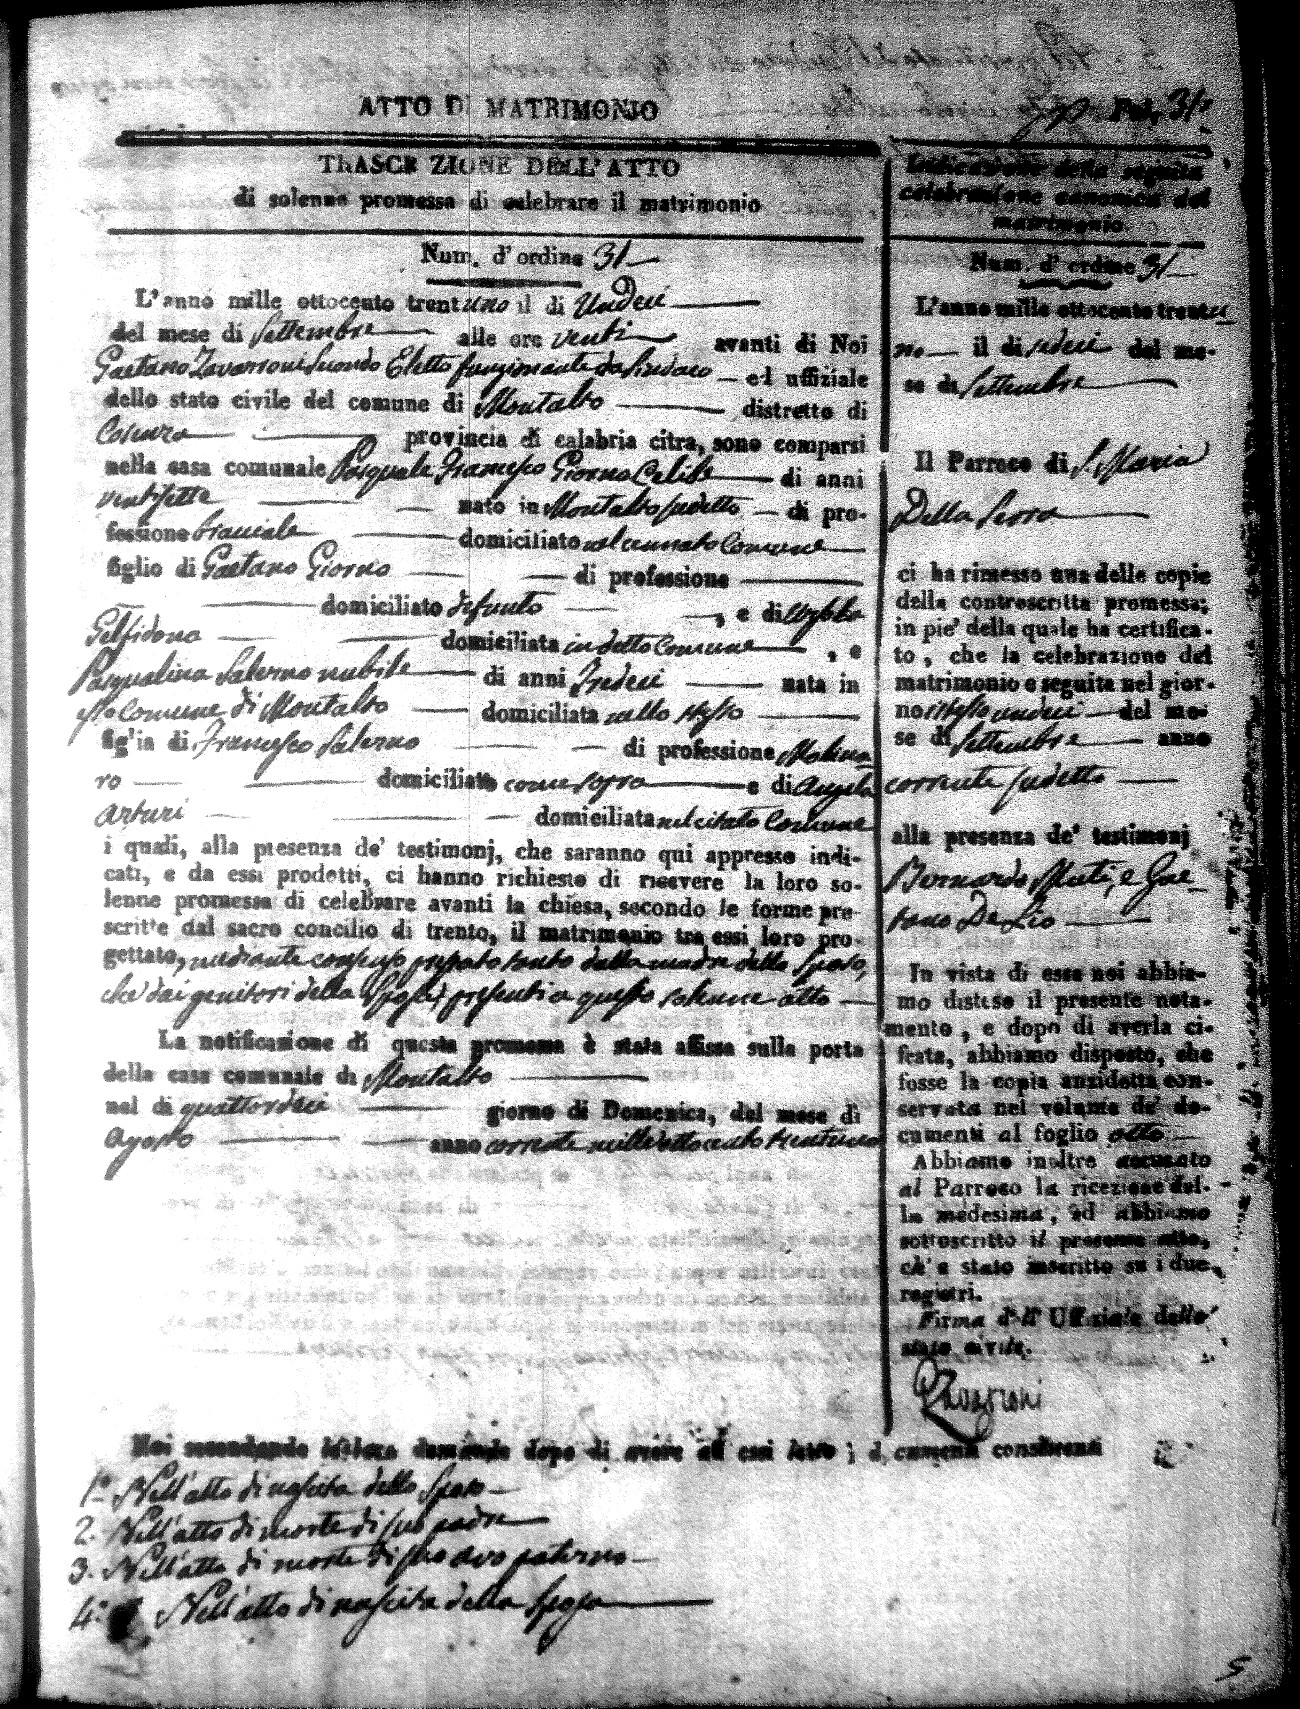 ATTO DI MATRIMONIO
Fol. 31.
TRASCRIZIONE DELL'ATTO
di solenne promessa di celebrare il matrimonio
Num. d'ordine 31
L'anno mille ottocento trentuno il di Undeci
del mese di Settembre alle ore venti avanti di Noi
Gaetano Zavarroni Secondo Eletto funzionante da Sindaco ed uffiziale
dello stato civile del comune di Montalto distretto di
Cosenza provincia di calabria citra, sono comparsi
nella casa comunale Pasquale Francesco Giorno Celibe di anni
ventisette nato in Montalto sudetto di pro-
fessione bracciale domiciliato nel cennato Comune
figlio di Gaetano Giorno di professione
domiciliato defunto , e di
domiciliata in detto Comune , e
Pasqualina Salerno nubile di anni Sedeci nata in
Comune di Montalto domiciliata nello stesso
figlia di Francesco Salerno di professione Molina
ro domiciliato come sopra e di Angela
Arturi domiciliata nel citato Comune
i quali, alla presenza de' testimonj, che saranno qui appresso indi-
cati, e da essi prodotti, ci hanno richiesto di ricevere la loro so-
lenne promessa di celebrare avanti la chiesa, secondo le forme pre-
scritte dal sacro concilio di trento, il matrimonio tra essi loro pro-
gettato, mediante consenso prestato tanto dalla madre dello Sposo,
che dai genitori della Sposa, presenti a questo solenne atto
La notificazione di questa promessa è stata affissa sulla porta
della casa comunale di Montalto
nel di quattordeci giorno di Domenica, del mese di
Agosto anno corrente mille ottocento trentuno
Indicazione della seguita
celebrazione canonica del
matrimonio.
Num. d'ordine 31
L'anno mille ottocento trentu
no il di sedeci del me-
se di Settembre
Il Parroco di S. Maria
Della Serra
ci ha rimesso una delle copie
della controscritta promessa;
in pie' della quale ha certifica-
to, che la celebrazione del
matrimonio e seguita nel gior-
no istesso undeci del me-
se di Settembre anno
corrente sudetto
alla presenza de' testimonj
Bernardo Muti, e Gae-
tano De Lio
In vista di essa noi abbia-
mo disteso il presente nota-
mento, e dopo di averla ci-
frata, abbiamo disposto, che
fosse la copia anzidetta con-
servata nel volume de' do-
cumenti al foglio otto
Abbiamo inoltre accusato
al Parroco la ricezione del-
la medesima, ed abbiamo
sottoscritto il presente atto,
ch'e stato inscritto su i due
registri.
Firma dell' Uffiziale dello
stato civile.
Zavarroni
Noi secondando la loro domanda dopo di avere ad essi letto i documenti consistenti
1.° Nell'atto di nascita dello Sposo
2. Nell'atto di morte di suo padre
3. Nell'atto di morte di suo avo paterno
4.° Nell'atto di nascita della Sposa
5